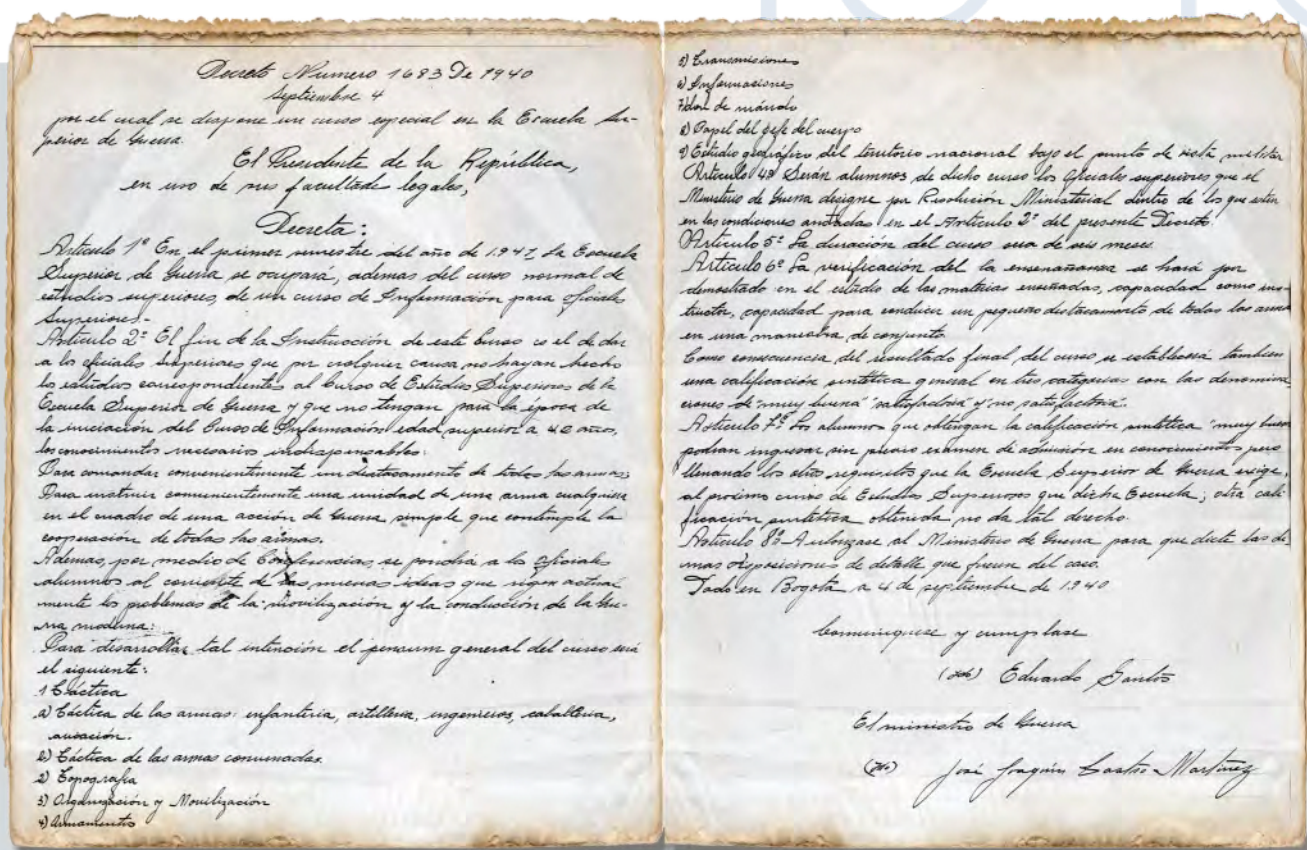 Decreto Numero 1683 De 1940
Septiembre 4
por el cual se dispone un curso especial en la Escuela Su-
perior de Guerra.
El Presidente de la República,
en uso de sus facultades legales,
Decreta:
Artículo 1º En el primer semestre del año de 1.941 La Escuela
Superior de Guerra se ocupará, ademas del curso normal de
estudios superiores, de un curso de Información para oficiales
Superiores.-
Artículo 2º El fin de la Instrucción de este Curso es el de dar
a los oficiales Superiores que por cualquier causa no hayan hecho
los estudios correspondientes al Curso de Estudios Superiores de la
Escuela Superior de Guerra y que no tengan para la época de
la iniciación del Curso de Información edad superior a 40 años,
los conocimientos necesarios indispensables:
Para comandar convenientemente un destacamento de todas las armas;
Para instruir convenientemente una unidad de una arma cualquiera
en el cuadro de una acción de Guerra simple que contemple la
cooperación de todas las armas.
Ademas, por medio de Conferencias, se pondrá a los oficiales
alumnos al corriente de las nuevas ideas que rigen actual
mente los problemas de la movilización y la conducción de la Gue-
rra moderna:
Para desarrollar tal intención el pensum general del curso será
el siguiente:
1 Táctica
a) Táctica de las armas: infantería, artilleria, ingenieros, caballeria,
aviación.
b) Táctica de las armas convinadas.
2) Topografía
3) Organización y Movilización
4) Armamentos
5) Transmisiones
6) Informaciones
7) de mando
8) Papel del gefe del cuerpo
9) Estudio geográfico del territorio nacional bajo el punto de vista militar
Artículo 4º Serán alumnos de dicho curso los Oficiales superiores que el
Ministerio de Guerra designe por Resolución Ministerial dentro de los que estén
en las condiciones anotadas en el Artículo 2º del presente Decreto.
Artículo 5º La duración del curso sera de seis meses.
Artículo 6º La verificación del la enseñanza se hará por
demostrado en el estudio de las materias enseñadas, capacidad como ins-
tructor, capacidad para conducir un pequeño destacamento de todas las armas
en una maniobra de conjunto.
Como consecuencia del resultado final, del curso se establecerá tambien
una calificación sintética general en tres categorias con las denomina-
ciones de "muy buena" "satisfactoria" y "no satisfactoria".
Artículo 7º Los alumnos que obtengan la calificación sintética "muy buena"
podran ingresar sin previo examen de admisión en conocimientos pero
llenando los otros requisitos que la Escuela Superior de Guerra exige,
al proximo curso de Estudios Superiores que dicta Escuela; otra cali
ficación sintética obtenida no da tal derecho.
Artículo 8º Autorizase al Ministerio de Guerra para que dicte las de
mas disposiciones de detalle que fueren del caso.
Dado en Bogotá a 4 de septiembre de 1.940
Comuniquese y cumplase
Eduardo Santos
El ministro de Guerra
José Joaquín Castro Martínez